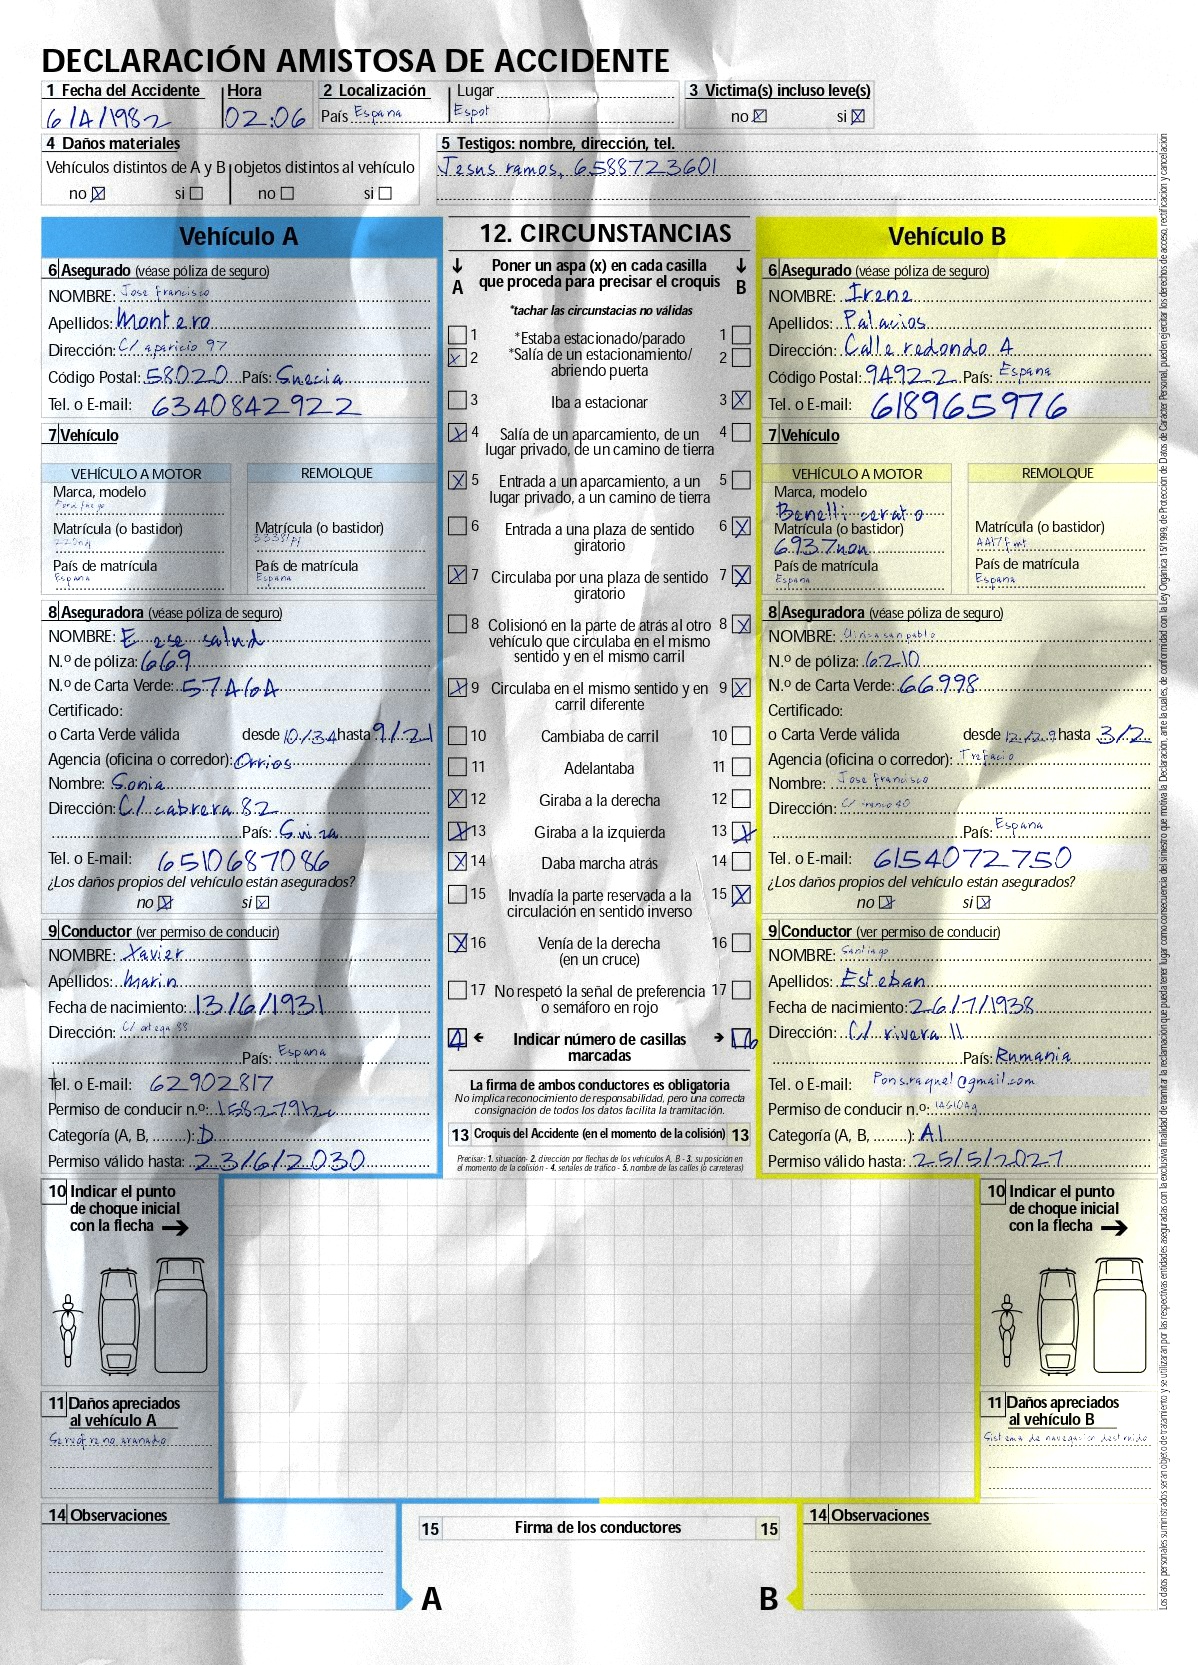 DECLARACIÓN AMISTOSA DE ACCIDENTE
1 Fecha del Accidente Hora 2 Localización Lugar 3 Victima(s) incluso leve(s)
6/4/1982 02:06 País España Espot no si
4 Daños materiales
Vehículos distintos de A y B objetos distintos al vehículo
no si no si
5 Testigos: nombre, dirección, tel.
Jesus ramos, 6588723601
Vehículo A
6 Asegurado (véase póliza de seguro)
NOMBRE: Jose francisco
Apellidos: Montero
Dirección: C/ aparicio 97
Código Postal: 58020 País: Suecia
Tel. o E-mail: 6340842922
7 Vehículo
VEHÍCULO A MOTOR REMOLQUE
Marca, modelo
Matrícula (o bastidor) Matrícula (o bastidor)
País de matrícula País de matrícula
España España
8 Aseguradora (véase póliza de seguro)
NOMBRE: salud
N.º de póliza: 669
N.º de Carta Verde: 57464
Certificado:
o Carta Verde válida desde 10/34 hasta 9/21
Agencia (oficina o corredor): Orrios
Nombre: Sonia
Dirección: C/ cabrera 82
País: Suiza
Tel. o E-mail: 6510687086
¿Los daños propios del vehículo están asegurados?
no si
9 Conductor (ver permiso de conducir)
NOMBRE: Xavier
Apellidos: Marin
Fecha de nacimiento: 13/6/1931
Dirección: C/ ortega 88
País: España
Tel. o E-mail: 62902817
Permiso de conducir n.º:
Categoría (A, B, ........): D
Permiso válido hasta: 23/6/2030
12. CIRCUNSTANCIAS
A Poner un aspa (x) en cada casilla que proceda para precisar el croquis B
*tachar las circunstacias no válidas
1 *Estaba estacionado/parado 1
2 *Salía de un estacionamiento/ 2
abriendo puerta
3 Iba a estacionar 3
4 Salía de un aparcamiento, de un 4
lugar privado, de un camino de tierra
5 Entrada a un aparcamiento, a un 5
lugar privado, a un camino de tierra
6 Entrada a una plaza de sentido 6
giratorio
7 Circulaba por una plaza de sentido 7
giratorio
8 Colisionó en la parte de atrás al otro 8
vehículo que circulaba en el mismo
sentido y en el mismo carril
9 Circulaba en el mismo sentido y en 9
carril diferente
10 Cambiaba de carril 10
11 Adelantaba 11
12 Giraba a la derecha 12
13 Giraba a la izquierda 13
14 Daba marcha atrás 14
15 Invadía la parte reservada a la 15
circulación en sentido inverso
16 Venía de la derecha 16
(en un cruce)
17 No respetó la señal de preferencia 17
o semáforo en rojo
4 Indicar número de casillas 16
marcadas
La firma de ambos conductores es obligatoria
No implica reconocimiento de responsabilidad, pero una correcta
consignación de todos los datos facilita la tramitación.
13 Croquis del Accidente (en el momento de la colisión) 13
Precisar: 1. situación- 2. dirección por flechas de los vehículos A, B - 3. su posición en
el momento de la colisión - 4. señales de tráfico - 5. nombre de las calles (o carreteras)
Vehículo B
6 Asegurado (véase póliza de seguro)
NOMBRE: Irene
Apellidos: Palacios
Dirección: Calle redondo 4
Código Postal: 94922 País: España
Tel. o E-mail: 618965976
7 Vehículo
VEHÍCULO A MOTOR REMOLQUE
Marca, modelo
Benelli cerato
Matrícula (o bastidor) Matrícula (o bastidor)
6937
País de matrícula País de matrícula
España España
8 Aseguradora (véase póliza de seguro)
NOMBRE: Clinica san pablo
N.º de póliza: 6210
N.º de Carta Verde: 66998
Certificado:
o Carta Verde válida desde 12/29 hasta 3/2
Agencia (oficina o corredor): Trefacio
Nombre: Jose francisco
Dirección: C/ franco 40
País: España
Tel. o E-mail: 6154072750
¿Los daños propios del vehículo están asegurados?
no si
9 Conductor (ver permiso de conducir)
NOMBRE: Santiago
Apellidos: Esteban
Fecha de nacimiento: 26/7/1938
Dirección: C/ rivera 11
País: Rumania
Tel. o E-mail: Pons.raquel@gmail.com
Permiso de conducir n.º:
Categoría (A, B, ........): A1
Permiso válido hasta: 25/5/2027
10 Indicar el punto
de choque inicial
con la flecha
11 Daños apreciados
al vehículo A
Servofreno aranado
10 Indicar el punto
de choque inicial
con la flecha
11 Daños apreciados
al vehículo B
Sistema de navegacion destruido
14 Observaciones
15 Firma de los conductores 15
A B
14 Observaciones
Los datos personales suministrados seran objeto de tratamiento y se utilizaran por las respectivas entidades aseguradas con la exclusiva finalidad de tramitar la reclamación que pueda tener lugar como consecuencia del siniestro que motiva la Declaración, ante la cuales, de conformidad con la Ley Organica 15/1999, de Protección de Datos de Carácter Personal, pueden ejercitar los derechos de acceso, rectificación y cancelación